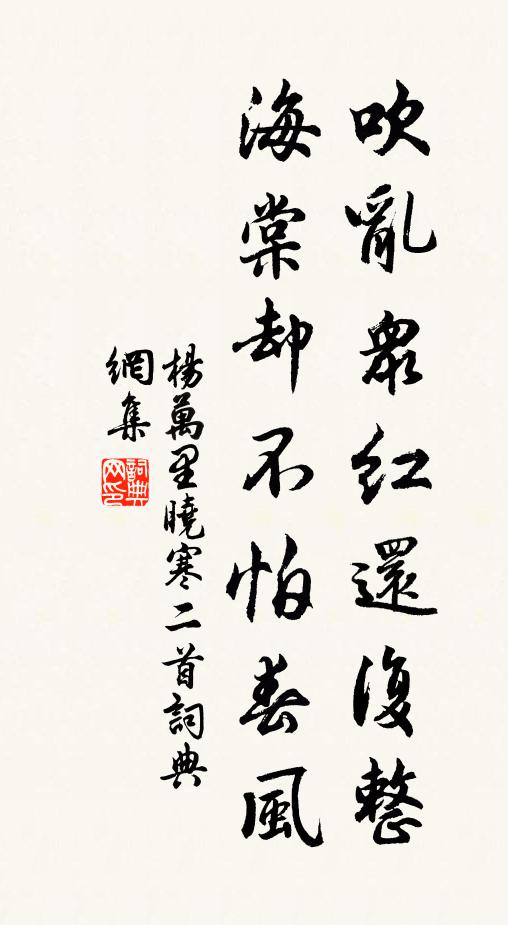 吹亂衆紅還復整
海棠却不怕春風
楊萬里曉寒二首詞典
網集
詞典
网印